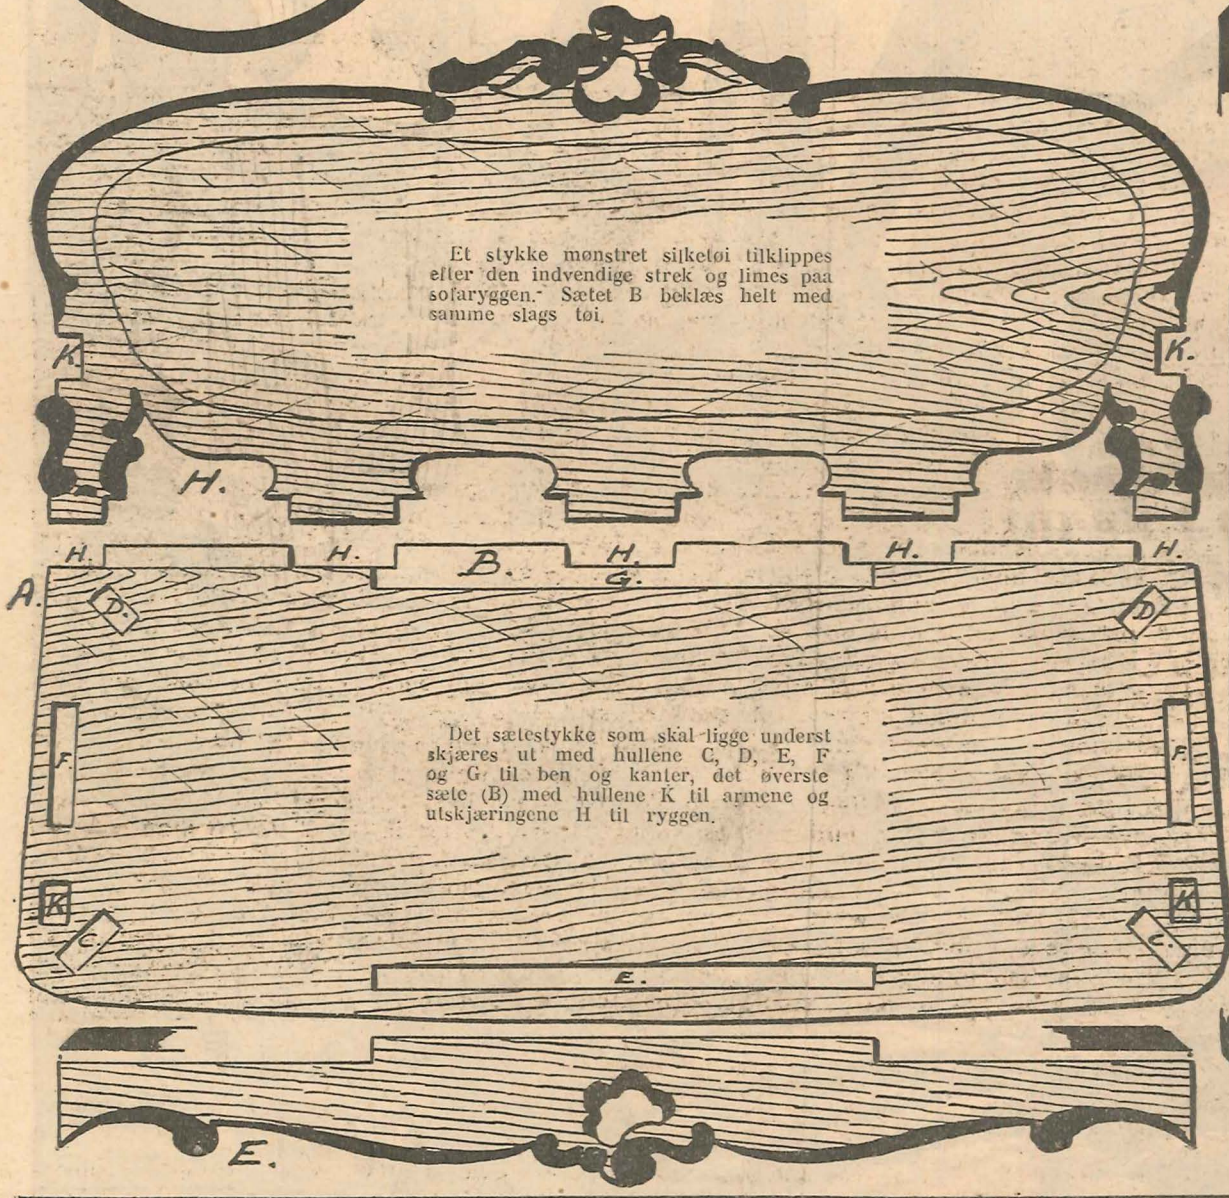 Et stykke mønstret silketøi tilklippes
efter den indvendige strek og limes paa
sofaryggen. Sætet B beklæs helt med
samme slags tøi.
K.
K.
H.
H.
H.
B.
H.
G.
H.
H.
A.
D.
D
F.
F.
Det sætestykke som skal ligge underst
skjæres ut med hullene C, D, E, F
og G til ben og kanter, det øverste
sæte (B) med hullene K til armene og
utskjæringene H til ryggen.
K
K
C.
C.
E.
E.